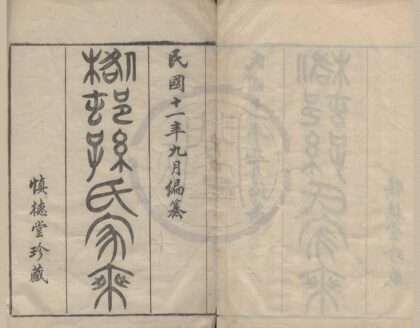 民國十一年九月編纂
孫氏家乘
慎德堂珍藏